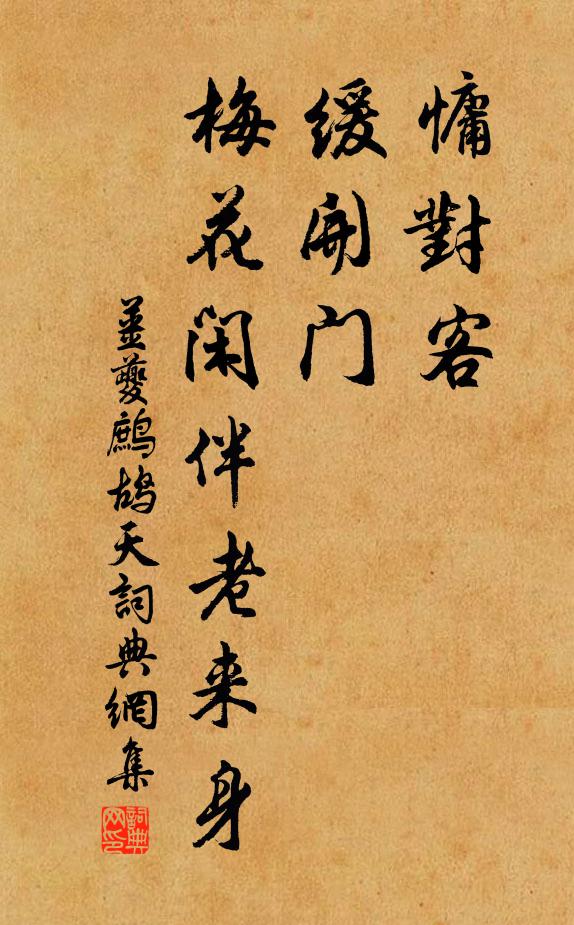 慵對客
緩開門
梅花閑伴老來身
姜夔鷓鴣天詞典網集
詞典网印